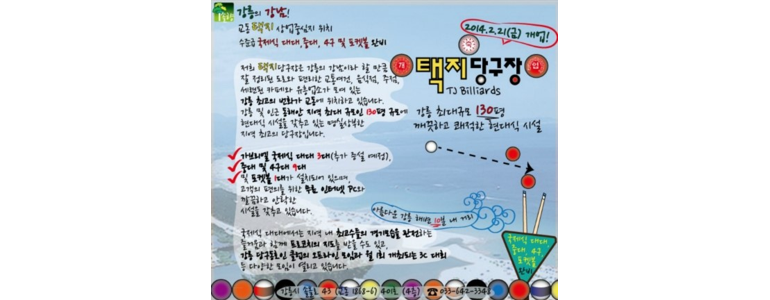 강릉의 강남!
교동 택지 상업중심지 위치
수준급 국제식 대대, 중대, 4구 및 포켓볼 완비
2014.2.21(금) 개업!
개 업
택지당구장
TJ Billiards
강릉 최대규모 130평
깨끗하고 쾌적한 현대식 시설
저희 택지당구장은 강릉의 강남이라 할 만큼
잘 정리된 도로와 편리한 교통여건, 음식점, 주점,
세련된 카페와 유흥업소가 모여 있는
강릉 최고의 번화가 교동에 위치하고 있습니다.
강릉 및 인근 동해안 지역 최대 규모인 130평 규모에
현대식 시설을 갖추고 있는 명실상부한
지역 최고의 당구장입니다.
가브리엘 국제식 대대 3대(추가 증설 예정),
중대 및 4구대 9대
및 포켓볼 1대가 설치되어 있으며,
고객의 편의를 위한 무료 인터넷 PC와
깔끔하고 안락한
시설을 갖추고 있습니다.
아름다운 강릉 해변 10분 내 거리
국제식 대대에서는 지역 내 최고수들의 경기모습을 관전하는
즐거움과 함께 프로코치의 지도를 받을 수도 있고,
강릉 당구동호인 클럽의 오프라인 모임과 월 1회 개최되는 3C 대회
등 다양한 모임이 열리고 있습니다
국제식 대대
중대 4구
포켓볼
완비
강릉시 솔올로 45 (교동 1868-6) 401호 (4층) ☎033-642-3348